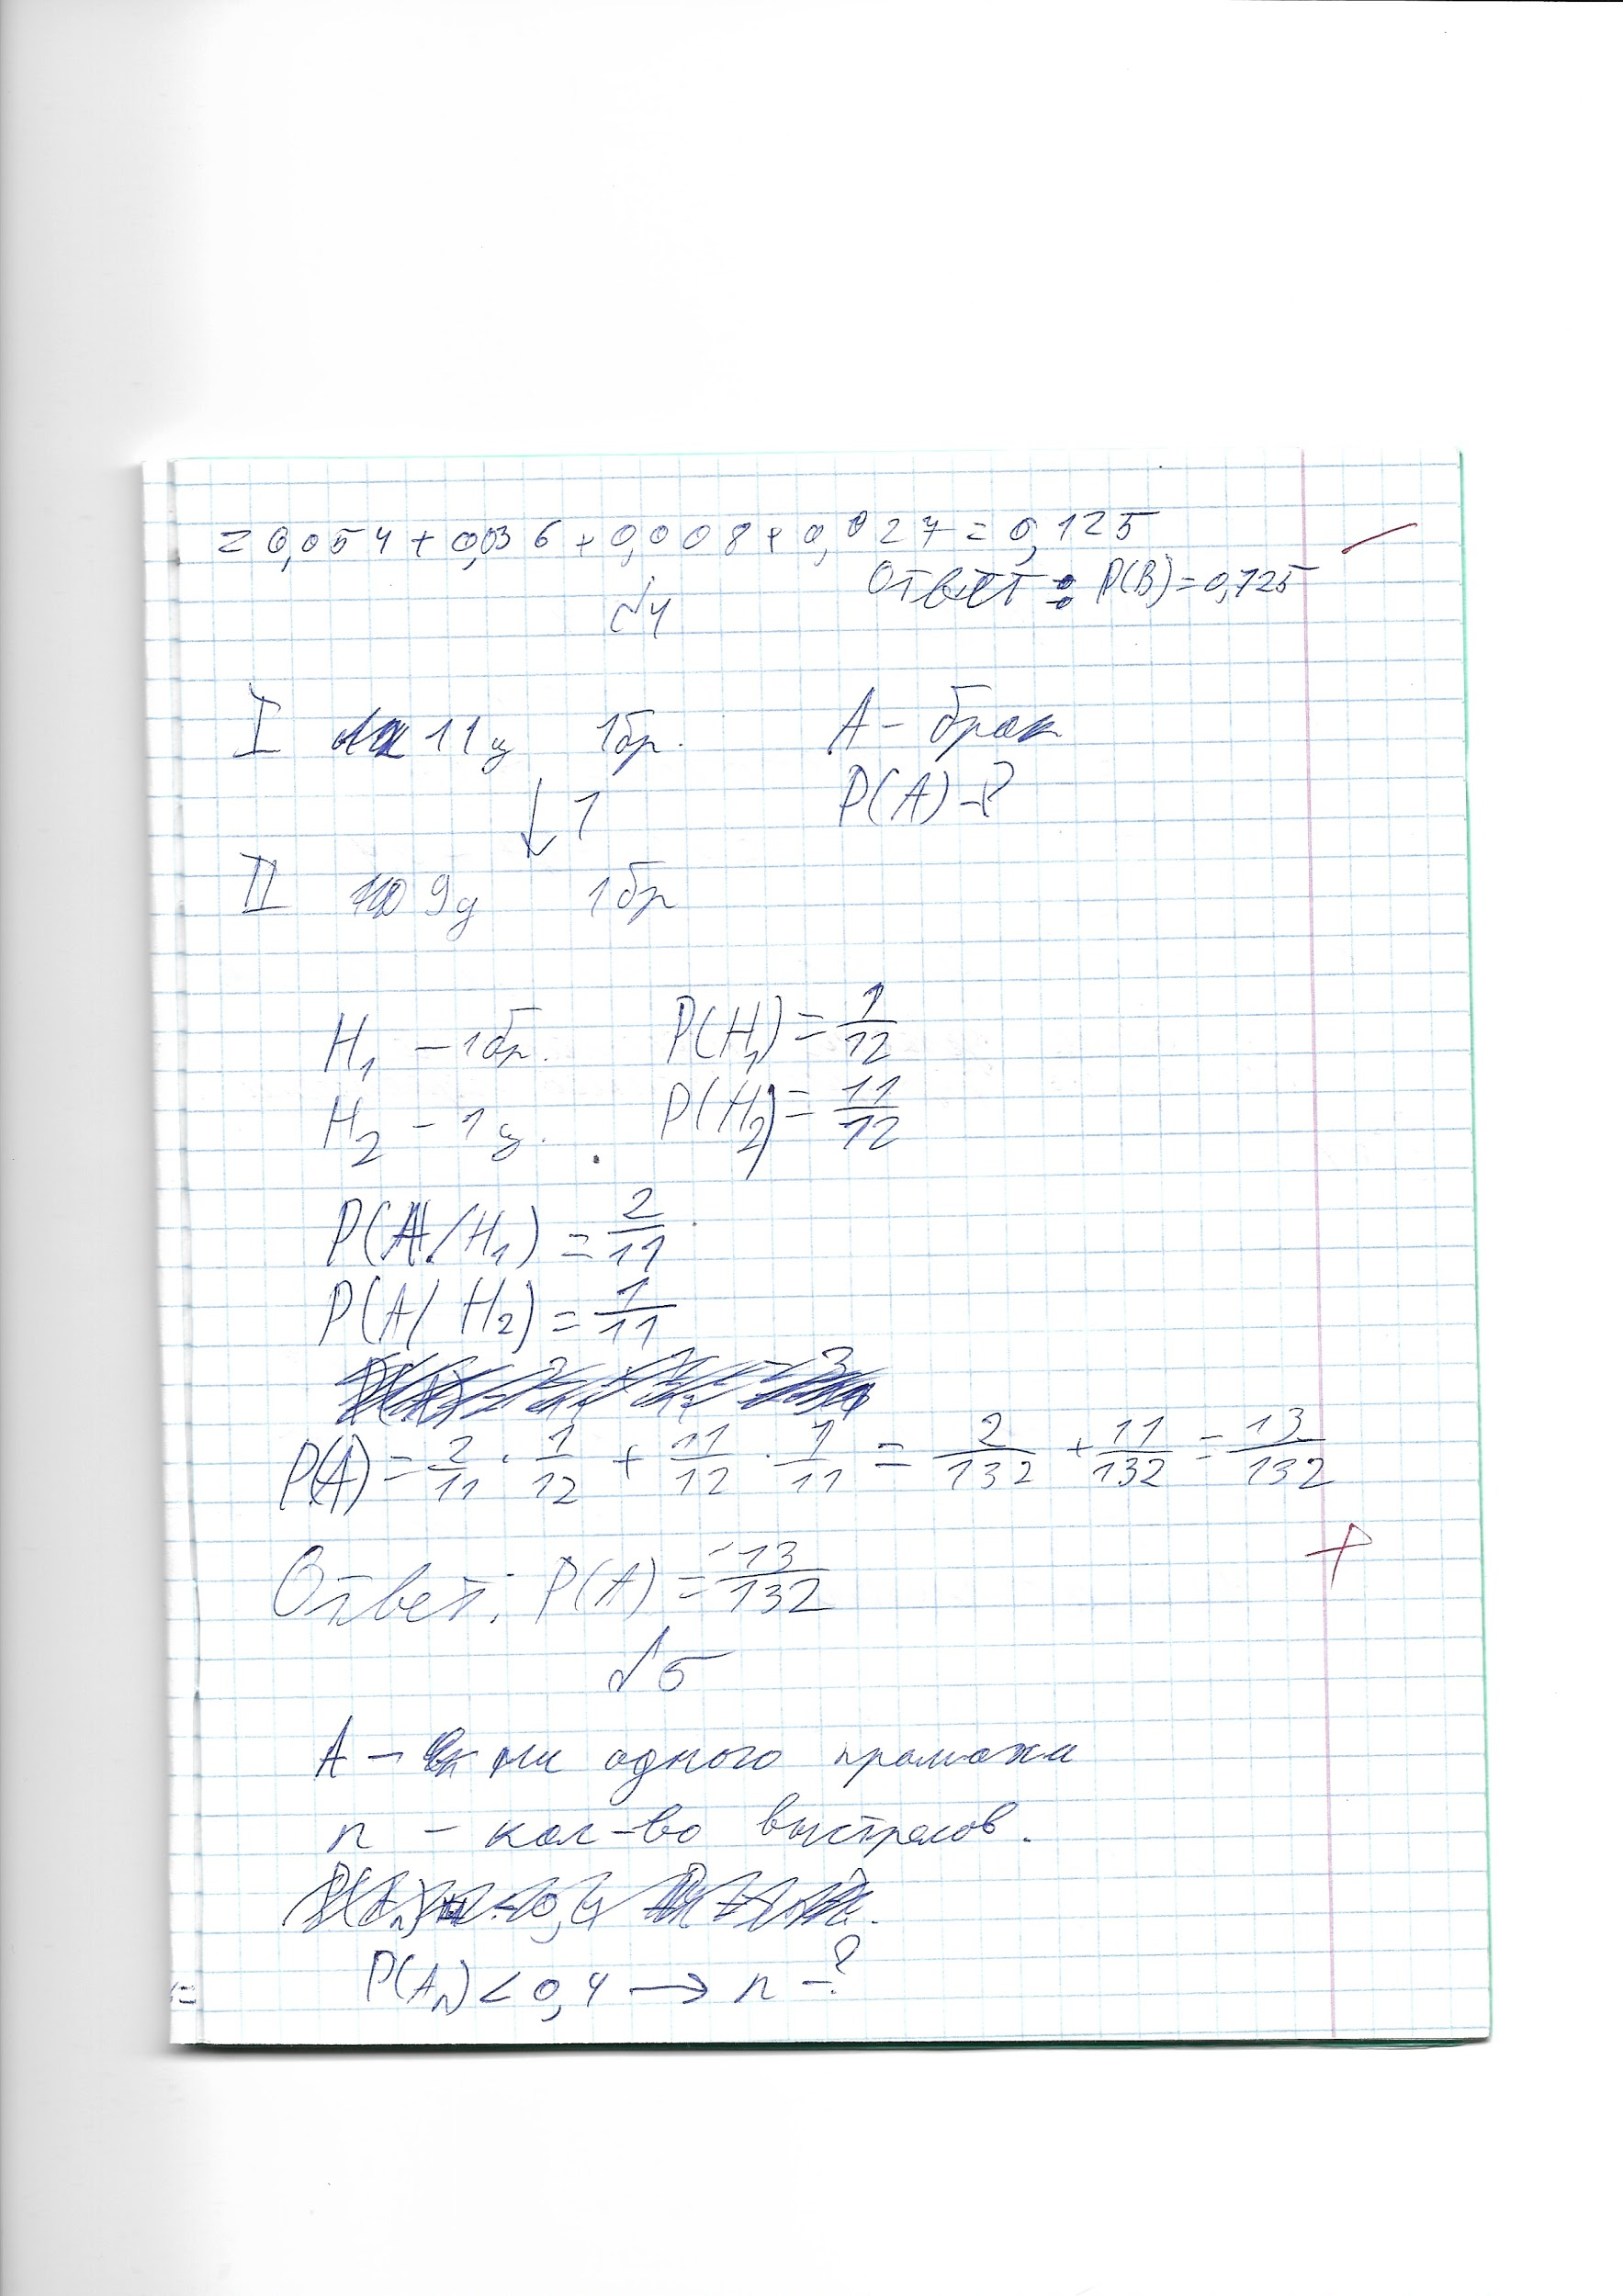 = 0,054 + 0,036 + 0,008 + 0,027 = 0,125
Ответ: P(B) = 0,125
№4
I 11 ц 1 бр. A - брак
P(A) - ?
↓ 1
II 9 ц 1 бр
H₁ - 1 бр. P(H₁) = 1/12
H₂ - 1 ц. P(H₂) = 11/12
P(A/H₁) = 2/11
P(A/H₂) = 1/11
P(A) = 2/11 · 1/12 + 11/12 · 1/11 = 2/132 + 11/132 = 13/132
Ответ: P(A) = 13/132
№5
A - ни одного промаха
n - кол-во выстрелов.
P(Aₙ) < 0,4 → n - ?